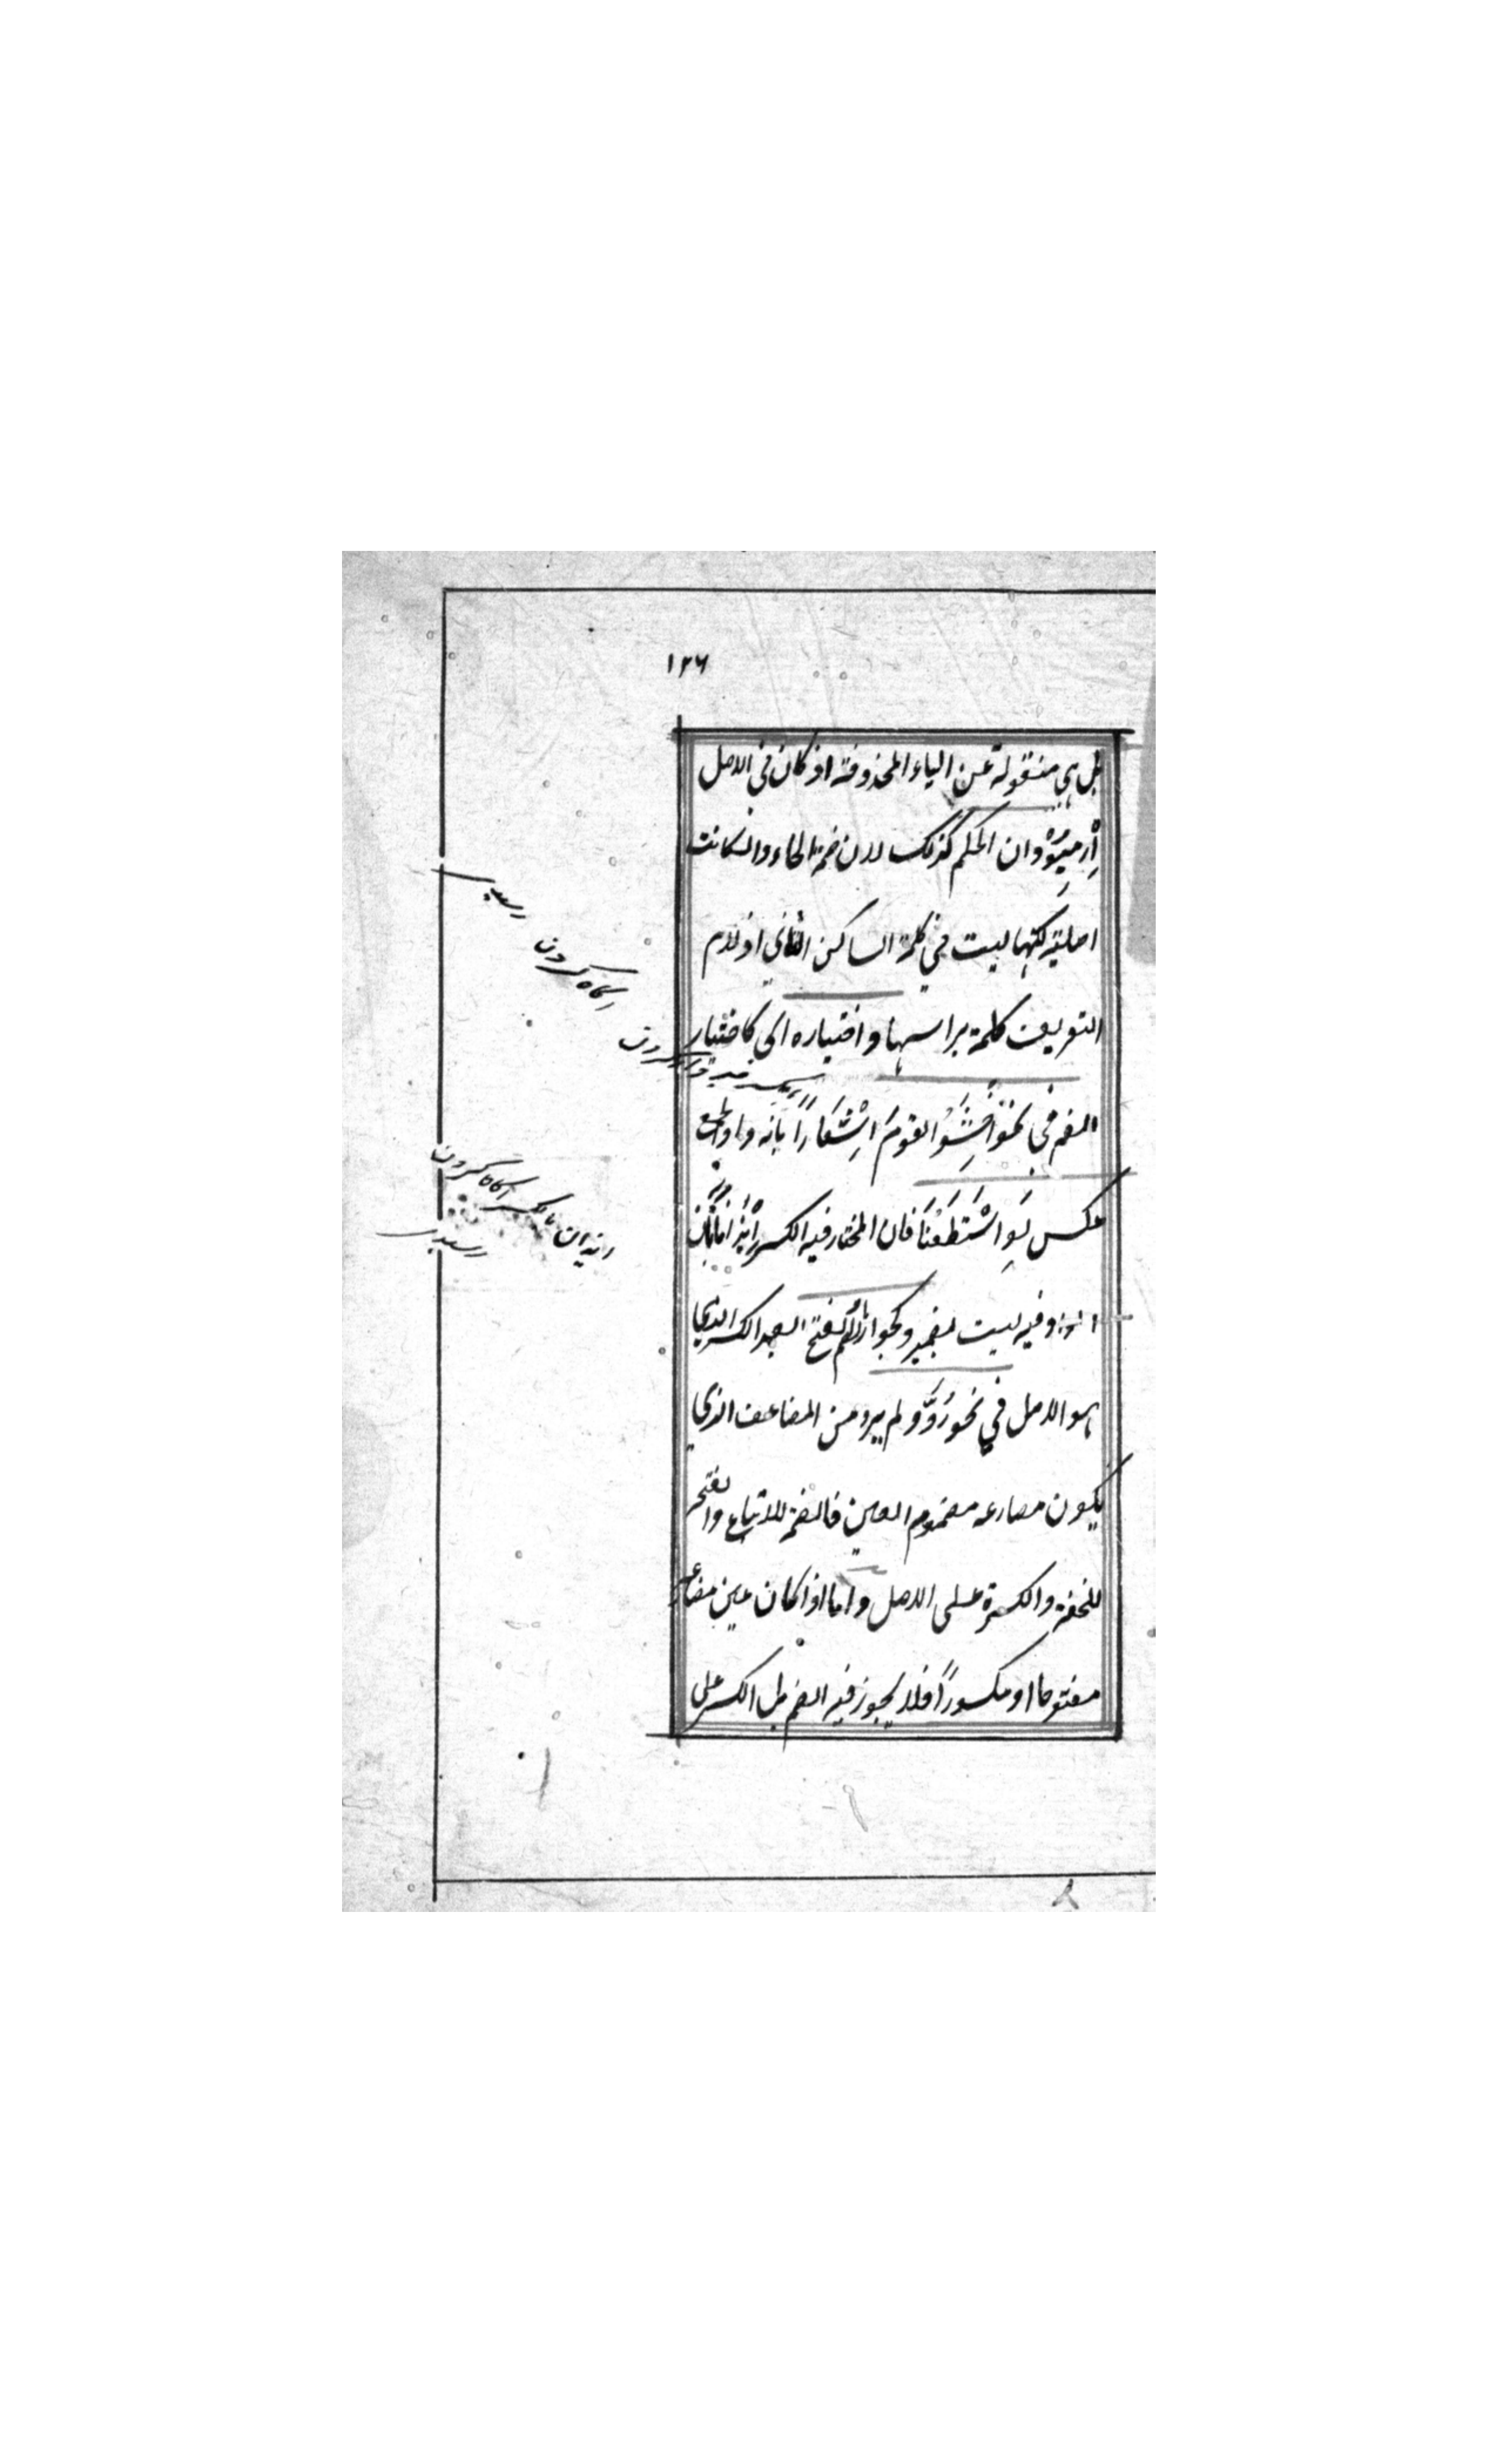 ١٢٦
بل هي منقولة عن الياء المحذوفة اذ كان فى الاصل
اِرْمِيُوْا وان الحكم كذلك لان ضمة الحاء وان كانت
اصلية لكنها ليست في كلمة الساكن الثاني اذ لام
التعريف كلمة براسها و اختياره اى كاختيار
الضم في نحو اخْشَوُا القومَ اِشْعَاراً بانه واو الجمع
عكس لَوِ اسْتَطَعْنَا فان المختار فيه الكسر ايذانا بان
الواو فيه ليست بضمير وكجواز الضم والفتح بعد الكسر الذي
هو الاصل في نحو رُدَّ ولم يرد من المضاعف الذي
يكون مضارعه مضموم العين فالضم للاتباع والفتح
للخفة والكسرة على الاصل و اما اذا كان عين مضارعه
مفتوحا او مكسوراً فلا يجوز فيه الضم بل الكسر على
اگاه كردن
ايذان بالكسر اگاه كردن